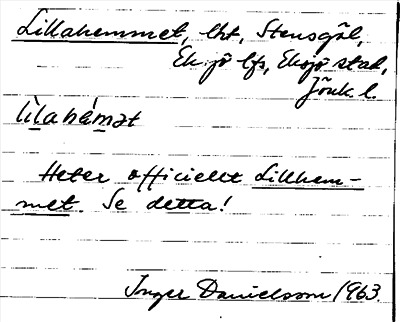 Lillahemmet, lht, Stensgöl,
Eksjö lfs, Eksjö stad,
Jönk l.
lìlahémət
Heter officiellt Lillhem-
met. Se detta!
Inger Danielsson 1963.